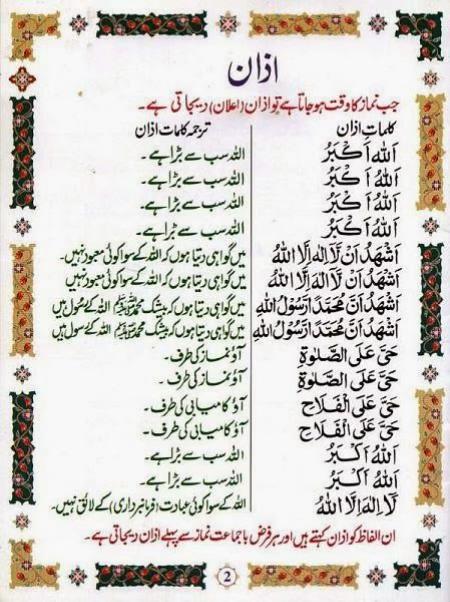 اذان
جب نماز کا وقت ہو جاتا ہے تو اذان (اعلان) دیجاتی ہے۔
کلماتِ اذان ترجمہ کلمات اذان
اَللهُ اَكْبَرُ اللہ سب سے بڑا ہے۔
اَللهُ اَكْبَرُ اللہ سب سے بڑا ہے۔
اَللهُ اَكْبَرُ اللہ سب سے بڑا ہے۔
اَللهُ اَكْبَرُ اللہ سب سے بڑا ہے۔
اَشْهَدُ اَنْ لَّا اِلٰهَ اِلَّا اللهُ میں گواہی دیتا ہوں کہ اللہ کے سوا کوئی معبود نہیں۔
اَشْهَدُ اَنْ لَّا اِلٰهَ اِلَّا اللهُ میں گواہی دیتا ہوں کہ اللہ کے سوا کوئی معبود نہیں
اَشْهَدُ اَنَّ مُحَمَّدًا رَّسُوْلُ اللهِ میں گواہی دیتا ہوں کہ بیشک محمد ﷺ اللہ کے رسول ہیں
اَشْهَدُ اَنَّ مُحَمَّدًا رَّسُوْلُ اللهِ میں گواہی دیتا ہوں کہ بیشک محمد ﷺ اللہ کے رسول ہیں
حَیَّ عَلَی الصَّلٰوةِ آؤ نماز کی طرف۔
حَیَّ عَلَی الصَّلٰوةِ آؤ نماز کی طرف۔
حَیَّ عَلَی الْفَلَاحِ آؤ کامیابی کی طرف۔
حَیَّ عَلَی الْفَلَاحِ آؤ کامیابی کی طرف۔
اَللهُ اَكْبَرُ اللہ سب سے بڑا ہے۔
اَللهُ اَكْبَرُ اللہ سب سے بڑا ہے۔
لَا اِلٰهَ اِلَّا اللهُ اللہ کے سوا کوئی عبادت (فرمانبرداری) کے لائق نہیں۔
ان الفاظ کو اذان کہتے ہیں اور ہر فرض با جماعت نماز سے پہلے اذان دیجاتی ہے۔
2